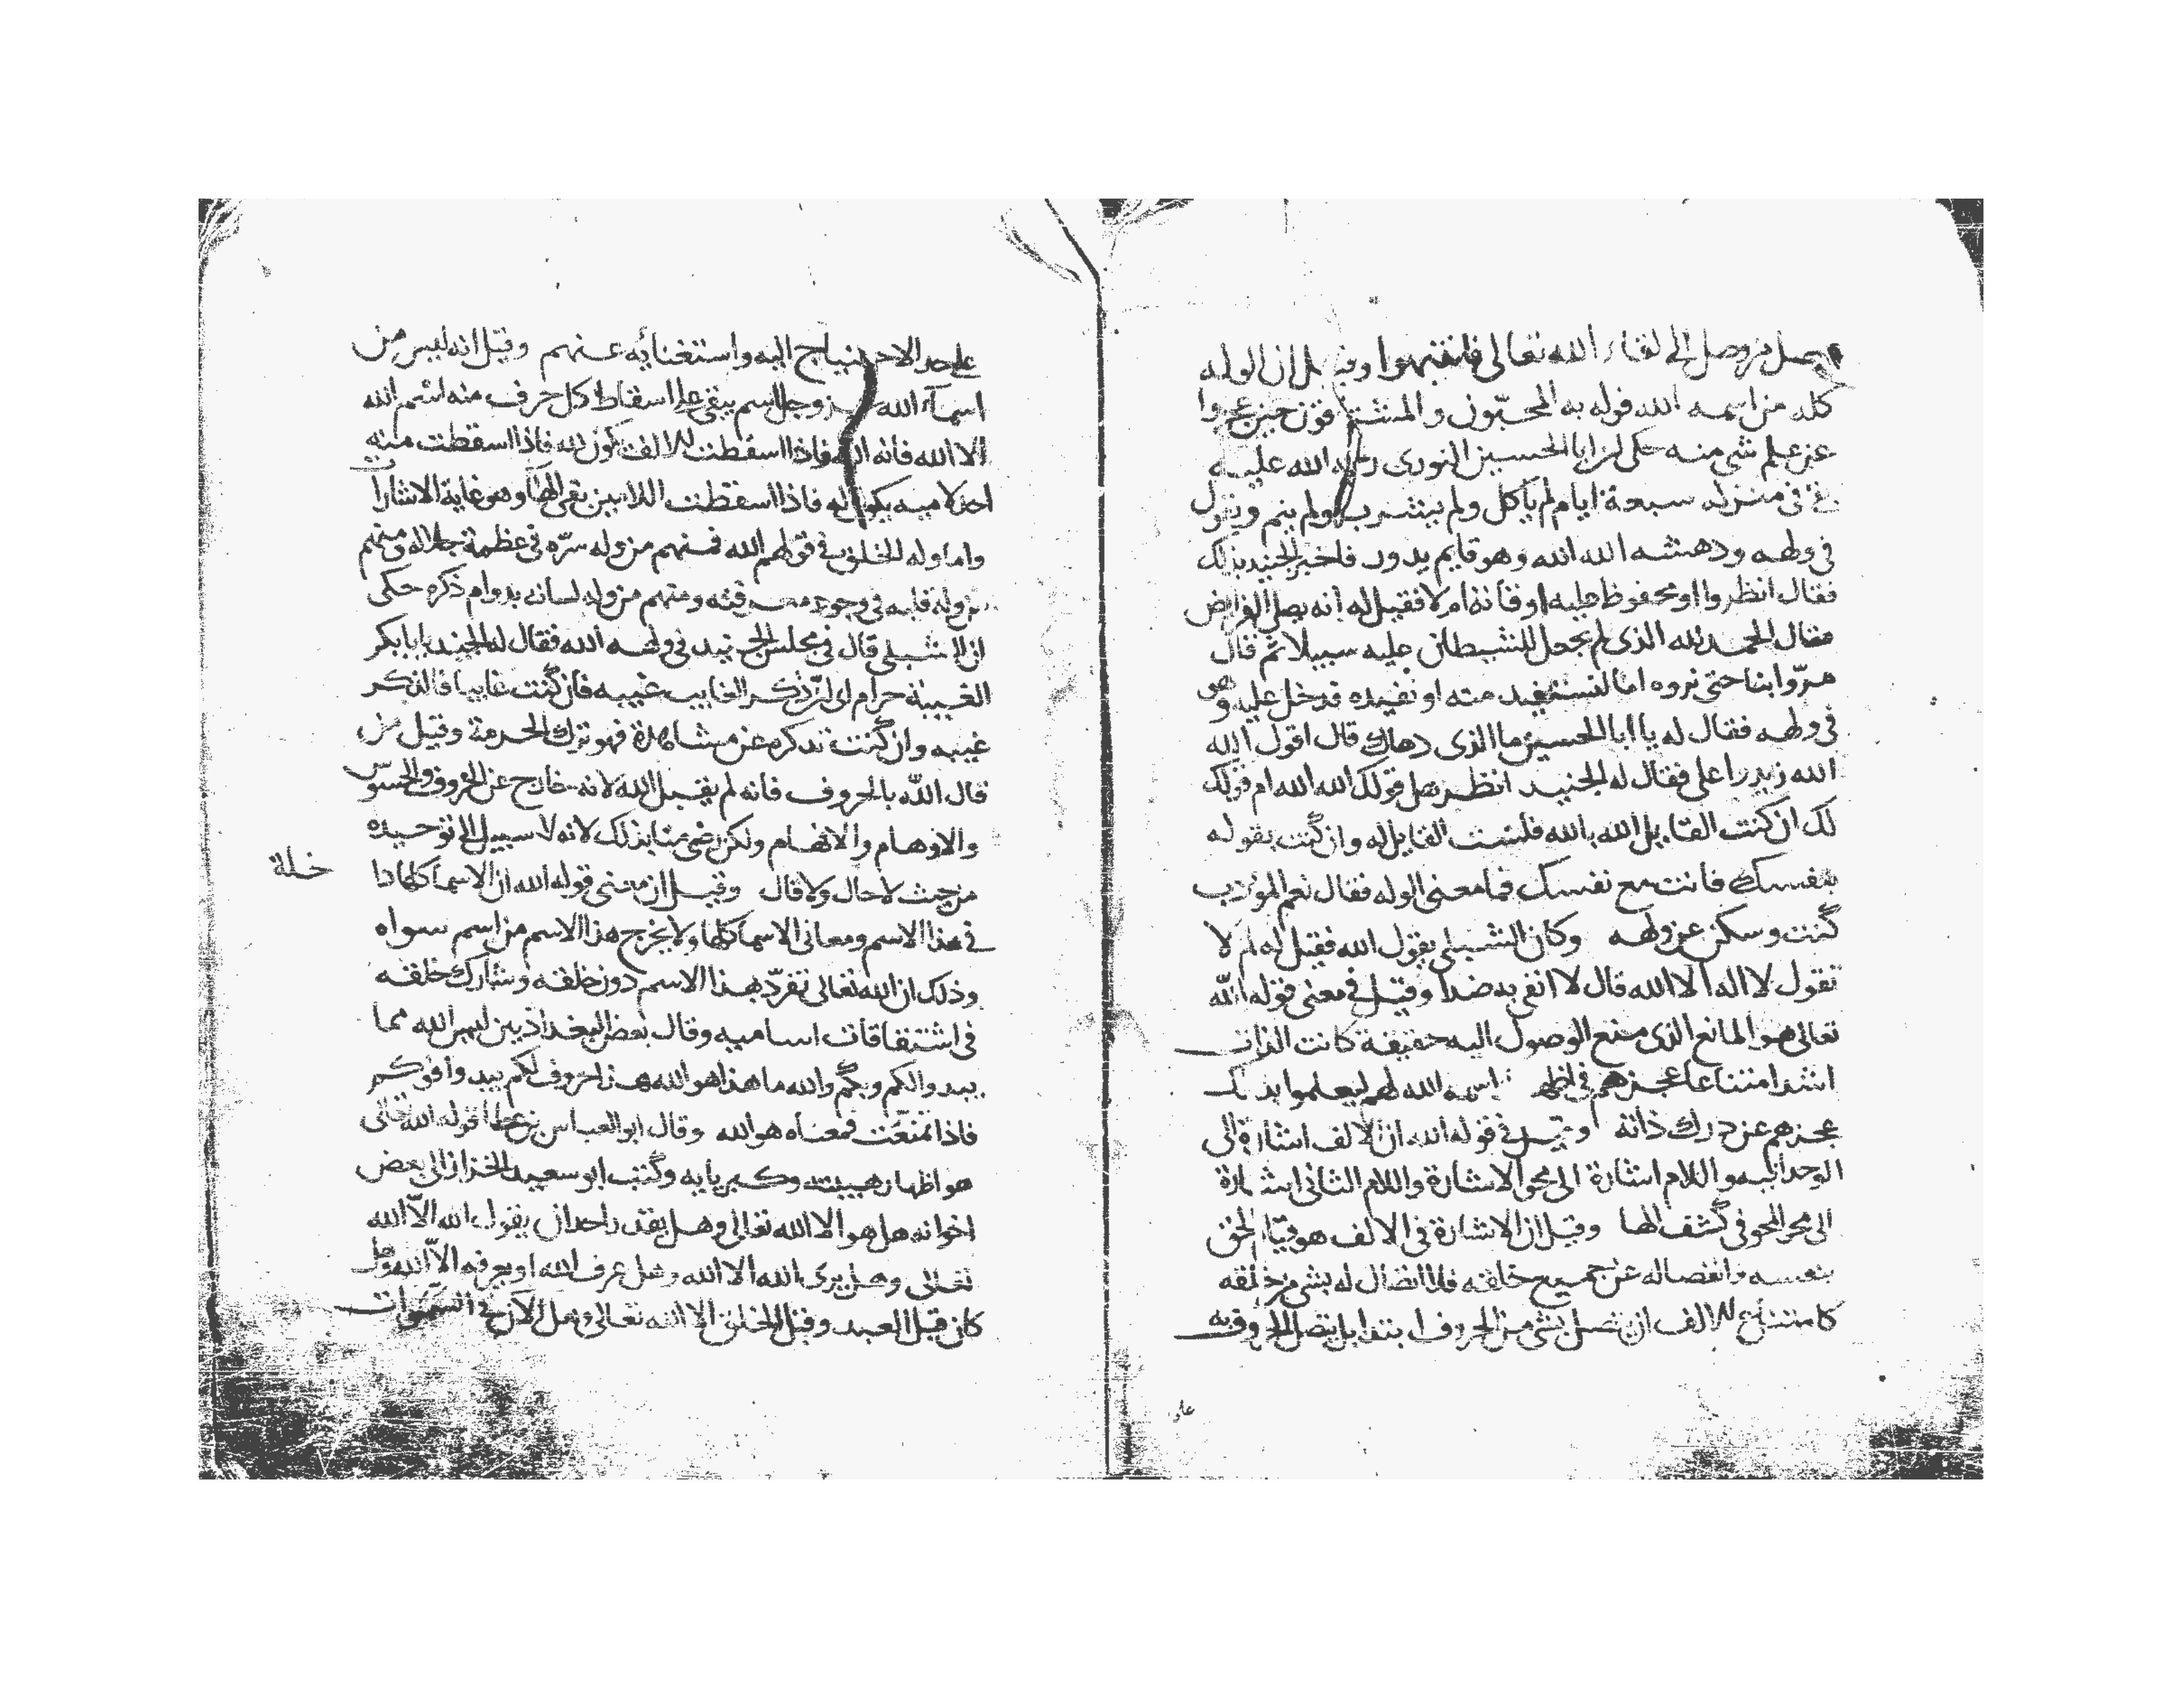 وصل من وصل الى لقاء الله تعالى فانتبهوا وقيل ان الوله
كله من اسمه الله فوله به المحبّون والمشتاقون حين عجزوا
عن علم شي منه حكى ان ابا الحسين النورى رحمة الله عليه
بقى فى منزله سبعة ايام لم ياكل ولم يشرب ولم ينم ويقول
فى ولهه ودهشه الله الله وهو قايم يدور فاخبر الجنيد بذلك
فقال انظروا امحفوظ عليه اوقاته ام لا فقيل له انه يصلى الفرايض
فقال الحمد لله الذى لم يجعل للشيطان عليه سبيلا ثم قال
مرّوا بنا حتى نزوره اما لنستفيد منه او نفيده فدخل عليه وهو
فى ولهه فقال له يا ابا الحسين ما الذى دهاك قال اقول الله
الله زيدوا على فقال له الجنيد انظر هل قولك الله الله ام قولك
لك ان كنت القايل الله بالله فلست القايل له وان كنت بقوله
بنفسك فانت مع نفسك فما معنى الوله فقال نعم المؤدب
كنت وسكن عن ولهه وكان الشبلى يقول الله فقيل له لم لا
تقول لا اله الا الله قال لا انفى به ضدا وقيل فى معنى قوله الله
تعالى هو المانع الذى منع الوصول اليه حقيقة كانت الذات
اشد امتناعا عجزهم فى اظهار اسمه الله لهم ليعلموا بذلك
عجزهم عن درك ذاته وقيل فى قوله الله ان الالف اشارة الى
الوحدانيه واللام اشارة الى محو الاشارة واللام الثانى اشارة
الى محو المحو فى كشف الها وقيل ان الاشارة فى الالف هو قيام الحق
بنفسه وانفصاله عن جميع خلقه فلا اتصال له بشى من خلقه
كامتناع الالف ان تتصل بشى من الحروف ابتدا بل يتصل الحروف به
على حد الاحتياج اليه واستغنائه عنهم وقيل انه ليس من
اسمآء الله عز وجل اسم يبقى على اسقاط كل حرف منه اسم الله
الا الله فانه الله فاذا اسقطت الالف يكون لله فاذا اسقطت منه
احد لاميه يكون له فاذا اسقطت اللامين بقى الهآ وهو غاية الاشارا
واما وله الخلق فى قولهم الله فمنهم من وله سرّه فى عظمة جلاله ومنهم
من وله قلبه فى وجود معرفته ومنهم من وله لسانه بدوام ذكره حكى
ان الشبلى قال فى مجلس الجنيد فى ولهه الله فقال له الجنيد يا ابا بكر
الغيبة حرام اى انّ ذكر الغايب غيبه فان كنت غايبا فالذكر
غيبه وان كنت تذكره عن مشاهدة فهو ترك الحرمة وقيل من
قال الله بالحروف فانه لم يقبل الله لانه خارج عن الحروف والحسّ
والاوهام والافهام ولكن رضى منا بذلك لانه لا سبيل الى توحيده
من حيث لا حال ولا قال وقيل ان معنى قوله الله ان الاسما كلها دا
خلة
فى هذا الاسم ومعانى الاسما كلها ولا يخرج هذا الاسم من اسم سواه
وذلك ان الله تعالى تفرّد بهذا الاسم دون خلقه وشارك خلقه
فى اشتقاقات اساميه وقال بعض البغداذيين ليس الله مما
يبدو الكم وبكم والله ما هذا هو الله هذا حروف لكم يبدوا فوكم
فاذا تمنعت فمعناه هو الله وقال ابو العباس بن عطا قوله الله تعالى
هو اظهار هيبته وكبريايه وكتب ابو سعيد الخراز الى بعض
اخوانه هل هو الا الله تعالى وهل يقدر احدان يقول الله الاّ الله
تعالى وهل يرى الله الا الله وهل عرف الله او يعرفه الاّ الله وهل
كان قبل العبد وقبل الخلق الا الله تعالى وهل الآن فى السموات